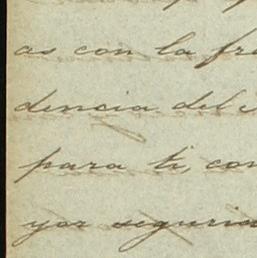 as con la fre
dencia del
para ti, con
yor segurida